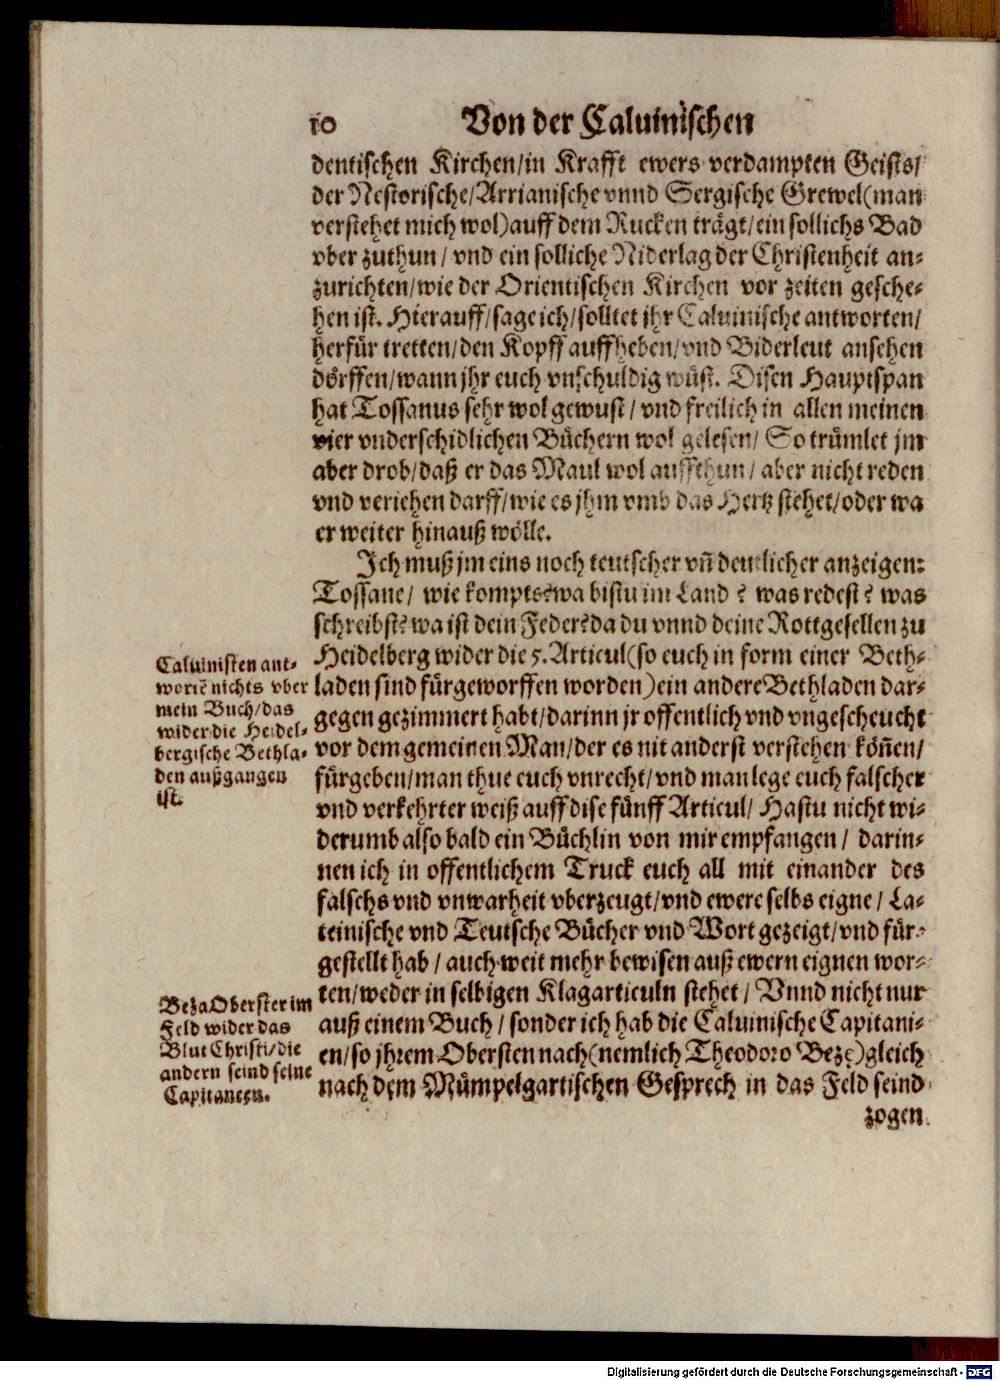 10 Von der Caluinischen
dentischen Kirchen/in Krafft ewers verdampten Geists/
der Nestorische/Arrianische vnnd Sergische Grewel(man
verstehet mich wol)auff dem Rucken trägt/ein sollichs Bad
vber zuthun/ vnd ein solliche Niderlag der Christenheit an-
zurichten/wie der Orientischen Kirchen vor zeiten gesche-
hen ist. Hierauff/sage ich/solltet jhr Caluinische antworten/
herfür tretten/den Kopff auffheben/vnd Biderleut ansehen
dörffen/wann jhr euch vnschuldig wüst. Disen Hauptspan
hat Tossanus sehr wol gewust/ vnd freilich in allen meinen
vier vnderschidlichen Büchern wol gelesen/ So trümlet jm
aber drob/daß er das Maul wol auffthun/ aber nicht reden
vnd veriehen darff/wie es jhm vmb das Hertz stehet/oder wa
er weiter hinauß wölle.
Ich muß jm eins noch teutscher vñ deutlicher anzeigen:
Tossane/ wie kompts?wa bistu im Land? was redest? was
schreibst?wa ist dein Feder?da du vnnd deine Rottgesellen zu
Heidelberg wider die 5. Articul(so euch in form einer Beth-
laden sind fürgeworffen worden)ein andere Bethladen dar-
gegen gezimmert habt/darinn jr offentlich vnd vngescheucht
vor dem gemeinen Man/der es nit anderst verstehen köñen/
fürgeben/man thue euch vnrecht/vnd man lege euch falscher
vnd verkehrter weiß auff dise fünff Articul/ Hastu nicht wi-
derumb also bald ein Büchlin von mir empfangen/ darin-
nen ich in offentlichem Truck euch all mit einander des
falschs vnd vnwarheit vberzeugt/vnd ewere selbs eigne/ La-
teinische vnd Teutsche Bücher vnd Wort gezeigt/vnd für-
gestellt hab/ auch weit mehr bewisen auß ewern eignen wor-
ten/weder in selbigen Klagarticuln stehet/ Vnnd nicht nur
auß einem Buch/ sonder ich hab die Caluinische Capitani-
en/so jhrem Obersten nach(nemlich Theodoro Bezę)gleich
nach dem Mümpelgartischen Gesprech in das Feld seind
zogen
Caluinisten ant-
wortē nichts vber
mein Buch/das
wider die Heidel-
bergische Bethla-
den außgangen
ist.
Beza Oberster im
Feld wider das
Blut Christi/die
andern seind seine
Capitaneen.
Digitalisierung gefördert durch die Deutsche Forschungsgemeinschaft - DFG